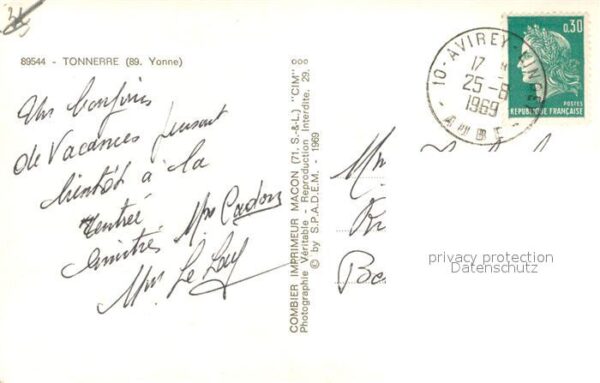 89544 - TONNERRE (89. Yonne)
Un bonjour
de Vacances pensant
bientôt à la
rentrée
Mme
Mme Le
COMBIER IMPRIMEUR MACON (71. S.-&-L.) "CIM"
Photographie Véritable - Reproduction Interdite. 29.
© by S.P.A.D.E.M. - 1969
10-AVIREY-LINGEY
17 H
25-8
1969
AUBE
0,30
POSTES
REPUBLIQUE FRANÇAISE
privacy protection
Datenschutz